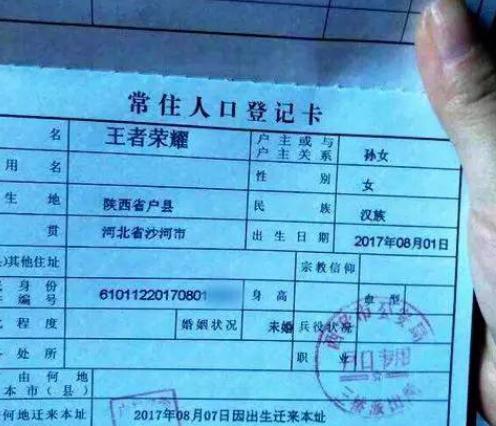 常住人口登记卡
名 王者荣耀 户主或与户主关系 孙女
用名 性别 女
生地 陕西省户县 民族 汉族
贯 河北省沙河市 出生日期 2017年08月01日
)其他住址 宗教信仰
身份
编号 61011220170801 身高 血型
程度 婚姻状况 未婚 兵役状况
处所 职业
由何地
本市(县)
何地迁来本址 2017年08月07日因出生迁来本址